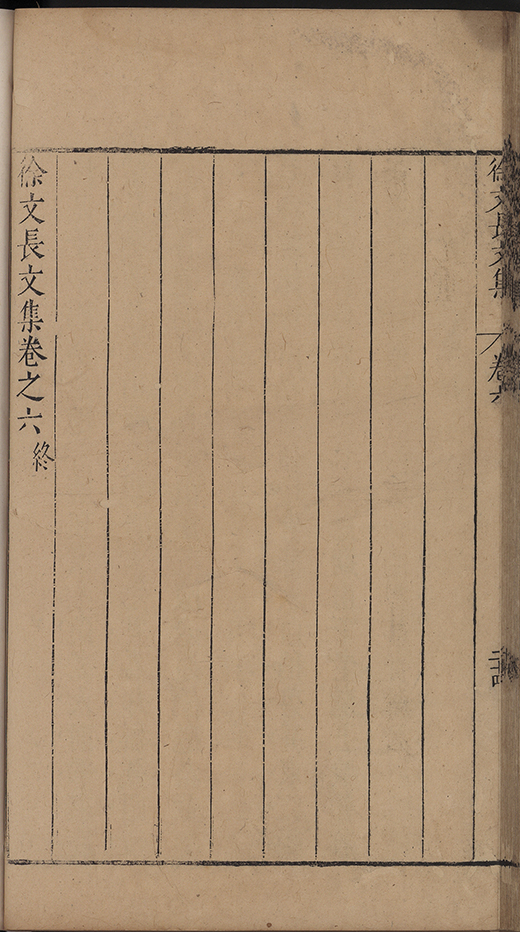 徐文長文集
卷六
徐文長文集卷之六終